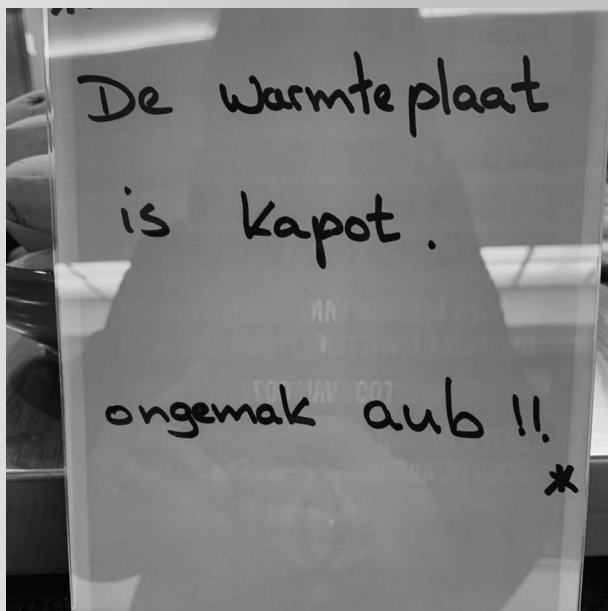 De warmteplaat
is kapot.
ongemak aub !!
*